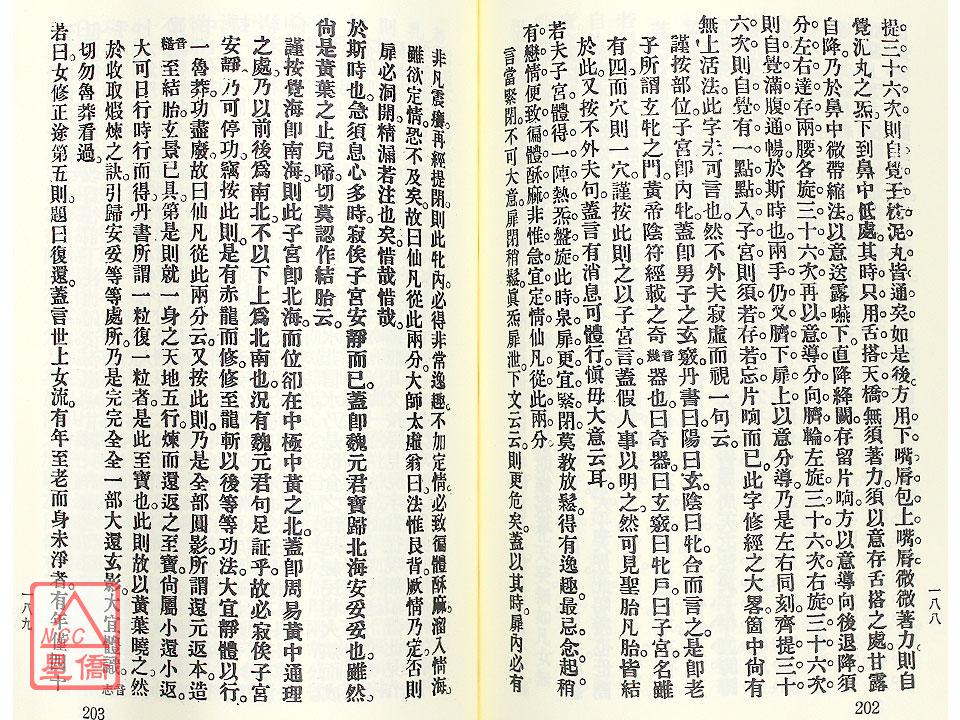 提三十六次則自覺玉枕泥丸皆通矣如是後方用下嘴脣包上嘴脣微微著力則自
覺氿丸之炁下到鼻中低處其時只用舌搭天橋無須著力須以意存舌搭之處甘露
自降乃於鼻中微帶縮法以意送露嚥下直降絳闕存留片晌方以意導向後退降須
分左右達存兩腰各旋三十六次再以意導分向臍輪左旋三十六次右旋三十六次
則自覺滿腹通暢於斯時也兩手仍叉臍下扉上以意分導乃是左右同刻齊提三十
六次則自覺有一點點入子宮則須若存若忘片晌而已此字修經之大畧箇中尚有
無上活法此字未可言也然不外夫寂虛而視一句云
謹按部位子宮卽內牝蓋卽男子之玄竅丹書曰陽曰玄陰曰牝合而言之是卽老
子所謂玄牝之門黃帝陰符經載之奇音幾器也曰奇器曰玄竅曰牝戶曰子宮名雖
有四而穴則一穴謹按此則之以子宮言蓋假人事以明之然可見聖胎凡胎皆結
於此又按不外夫句蓋言有消息可體行慎毋大意云耳
若夫子宮體得一陣熱炁盤旋此時泉扉更宜緊閉莫教放鬆得有逸趣最忌念起稍
有戀情便致徧體酥麻非惟急宜定情仙凡從此兩分
言當緊閉不可大意扉閉稍鬆眞炁扉泄下文云云則更危矣蓋以其時扉內必有
一八八
202
非凡震癢再經提閉則此牝內必得非常逸趣不加定情必致徧體酥麻溜入情海
雖欲定情恐不及矣故曰仙凡從此兩分大師太虛翁曰法惟艮背厥情乃定否則
扉必洞開精漏若注也矣惜哉惜哉
於斯時也急須息心多時寂俟子宮安靜而已蓋卽魏元君寶歸北海安妥妥也雖然
尙是黃葉之止兒啼切莫認作結胎云
謹按覺海卽南海則此子宮卽北海而位卻在中極中黃之北蓋卽周易黃中通理
之處乃以前後爲南北不以下上爲北南也況有魏元君句足証乎故必寂俟子宮
安靜乃可停功竊按此則是有赤龍而修修至龍斬以後等等功法大宜靜體以行
一魯莽功盡廢故曰仙凡從此兩分云又按此則乃是全部圓影所謂還元返本造
至結胎玄景已具第是則就一身之天地五行煉而還返之至寶尙屬小還小返
大可日行時行而得丹書所謂一粒復一粒者是此至寶也此則故以黃葉曉之然
於收取煆煉之訣引歸安妥等等處所乃是完完全全一部大還玄影大宜體識音志
切勿魯莽看過
若曰女修正途第五則題曰復還蓋言世上女流有年至老而身未淨者有年僅四十
一八九
203